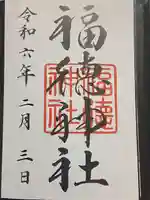 福徳神社
福徳神社
令和六年二月三日